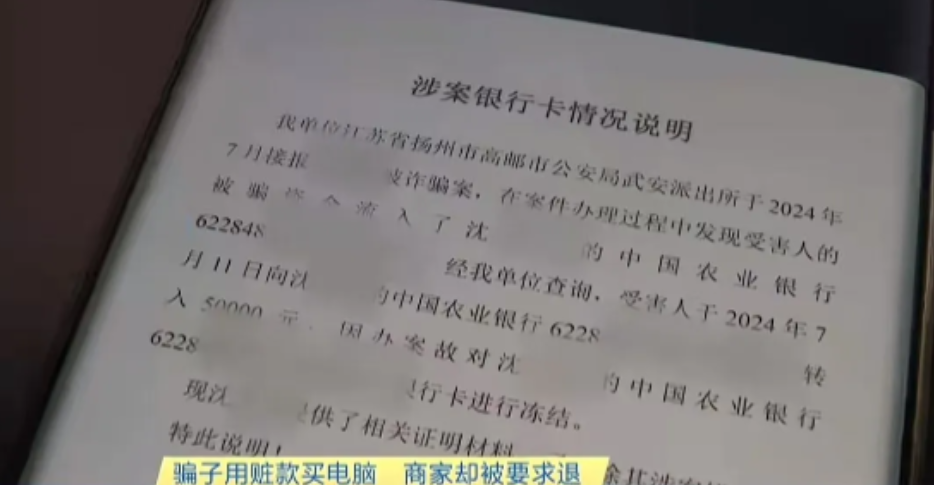 涉案银行卡情况说明
我单位江苏省扬州市高邮市公安局武安派出所于2024年
7月接报 被诈骗案，在案件办理过程中发现受害人的
被骗资金流入了沈 的中国农业银行
622848 经我单位查询，受害人于2024年7
月11日向沈 的中国农业银行6228 转
入50000元。因办案故对沈 的中国农业银行
6228 行卡进行冻结。
现沈 提供了相关证明材料
特此说明！
骗子用赃款买电脑 商家却被要求退